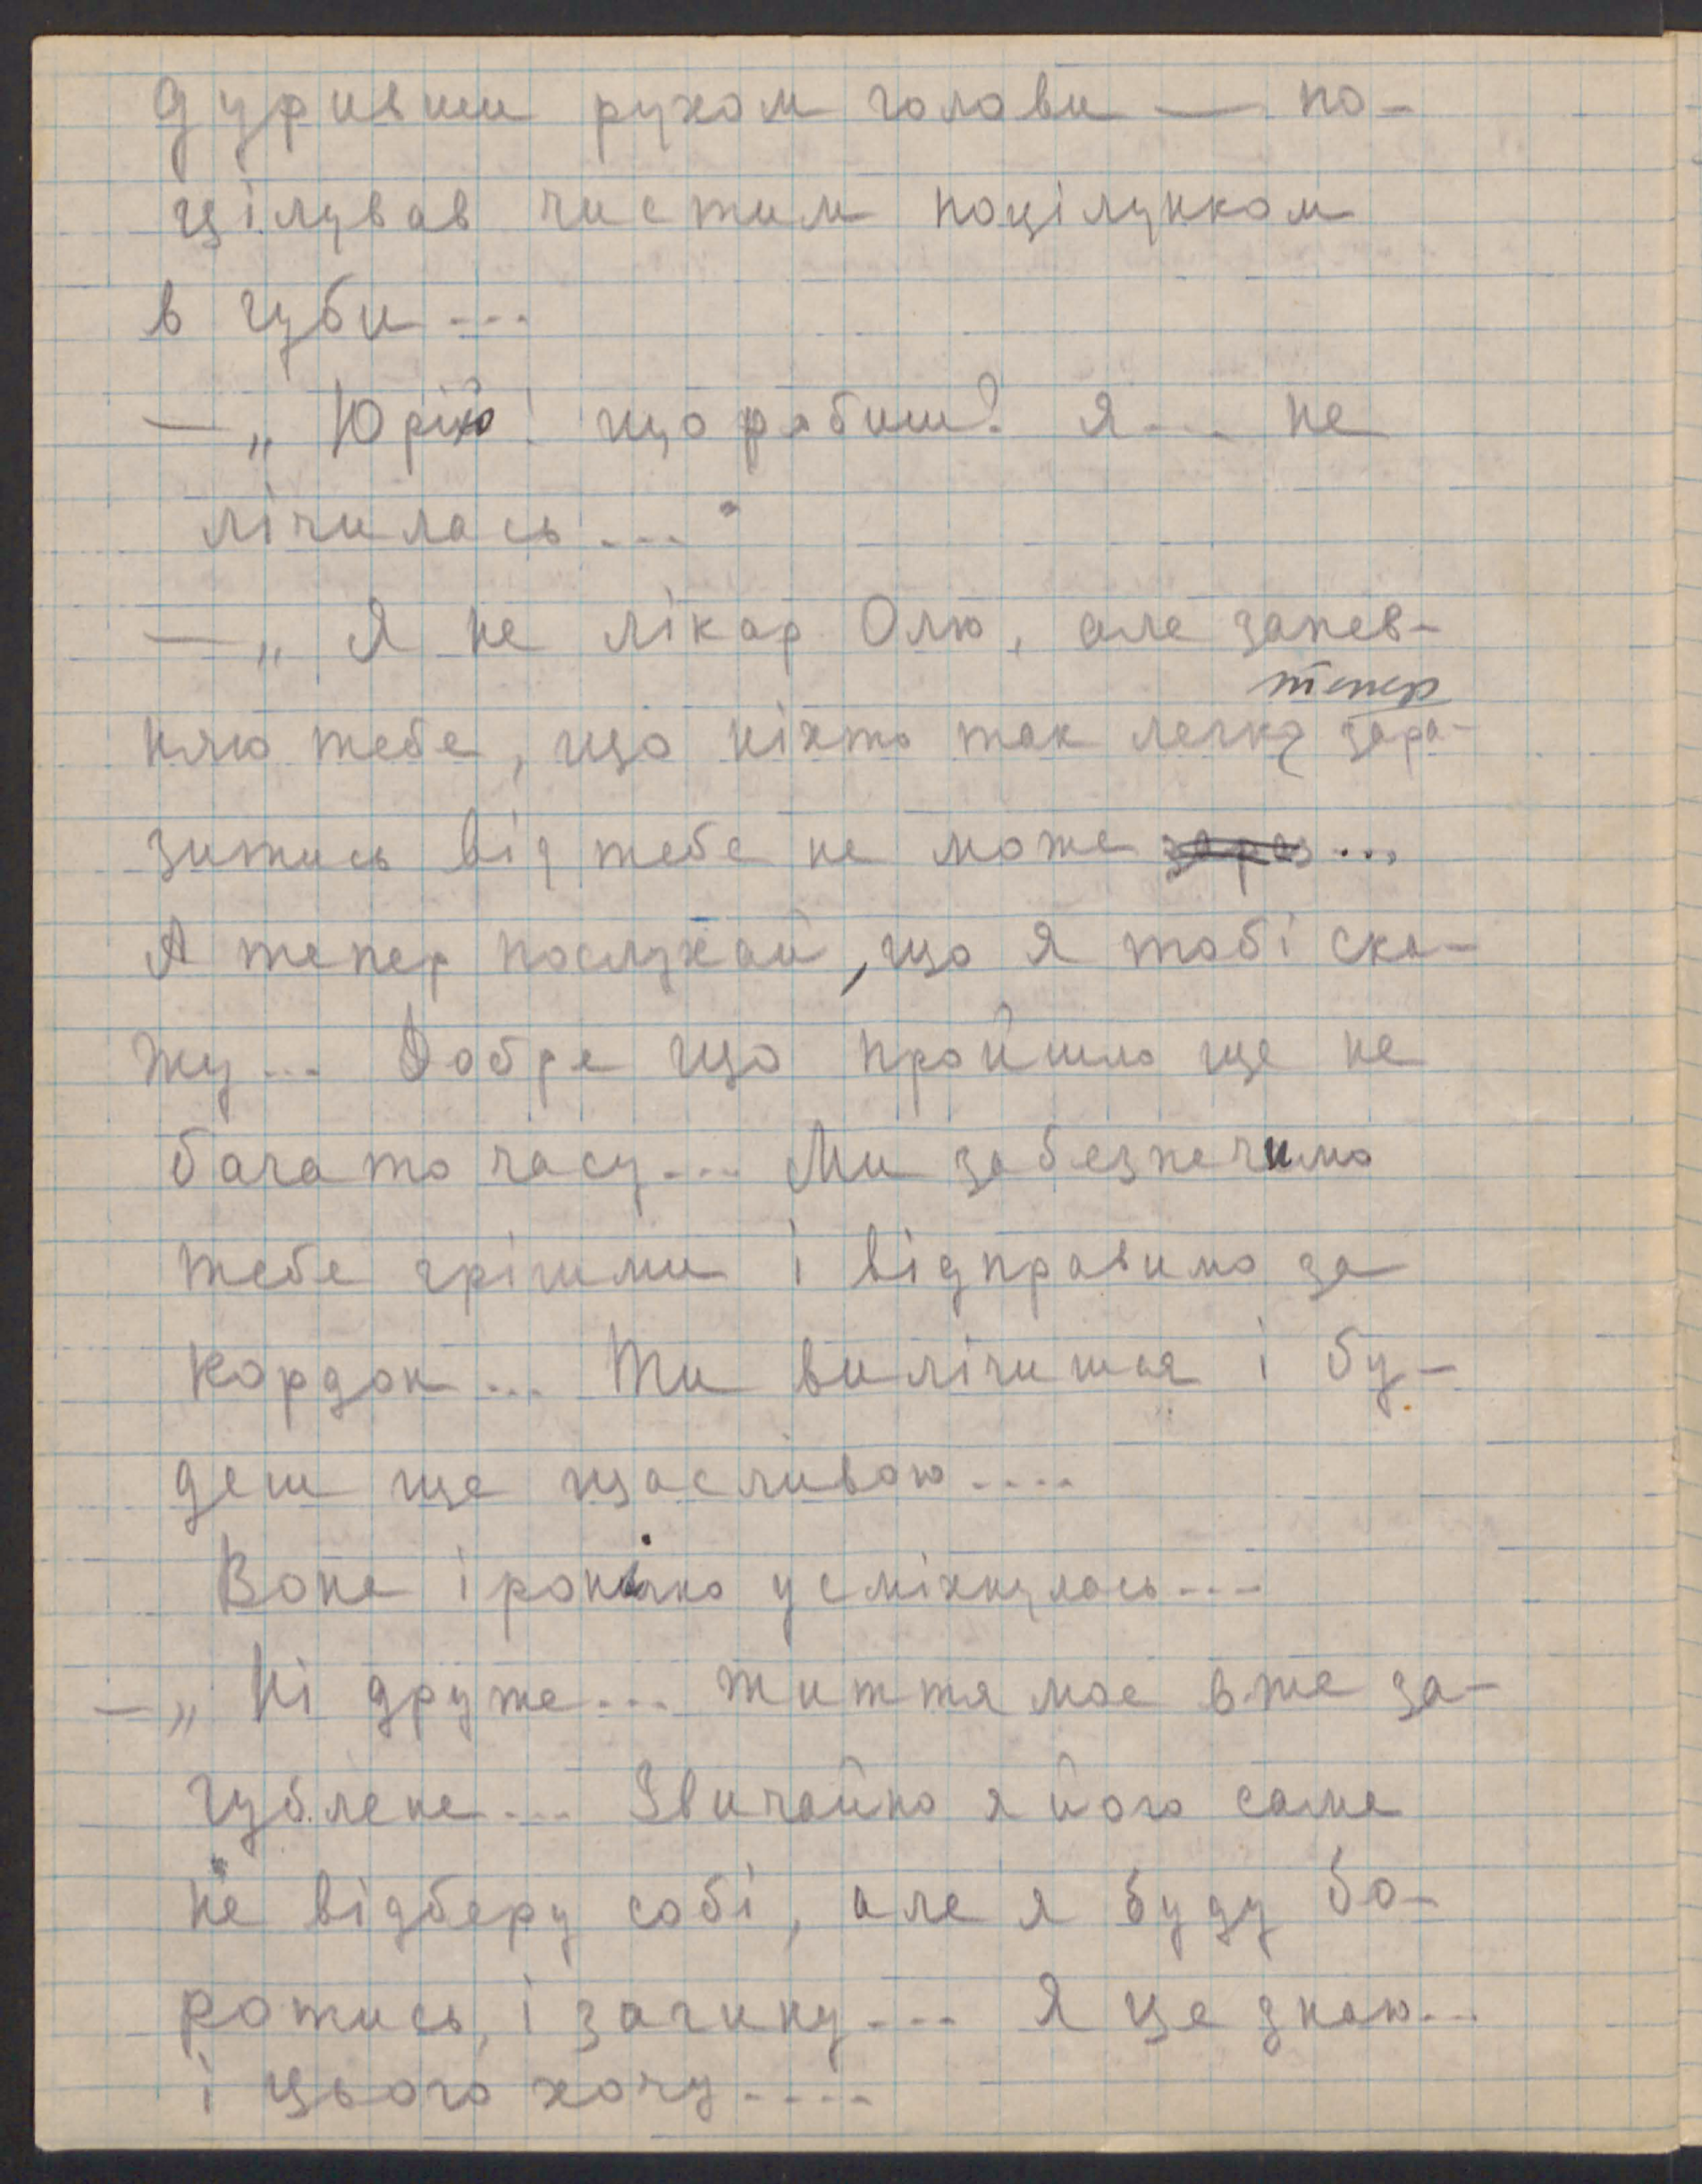 дуривши рухом голови — по-
цілував чистим поцілунком
в губи...
— „Юрію! що робиш? Я... не
лічилась..."
— „Я не лікар Олю, але запев-
тепер
няю тебе, що ніхто так легко зара-
зитись від тебе не може зараз...
А тепер послухай, що я тобі ска-
жу... Добре що пройшло ще не
багато часу... Ми забезпечимо
тебе грішми і відправимо за
кордон... Ти вилічишся і бу-
деш ще щасливою....
Вона іронічно усміхнулась...
— „Ні друже... життя моє вже за-
гублене... Звичайно я його сама
не відберу собі, але я буду бо-
ротись, і загину... Я це знаю...
і цього хочу....